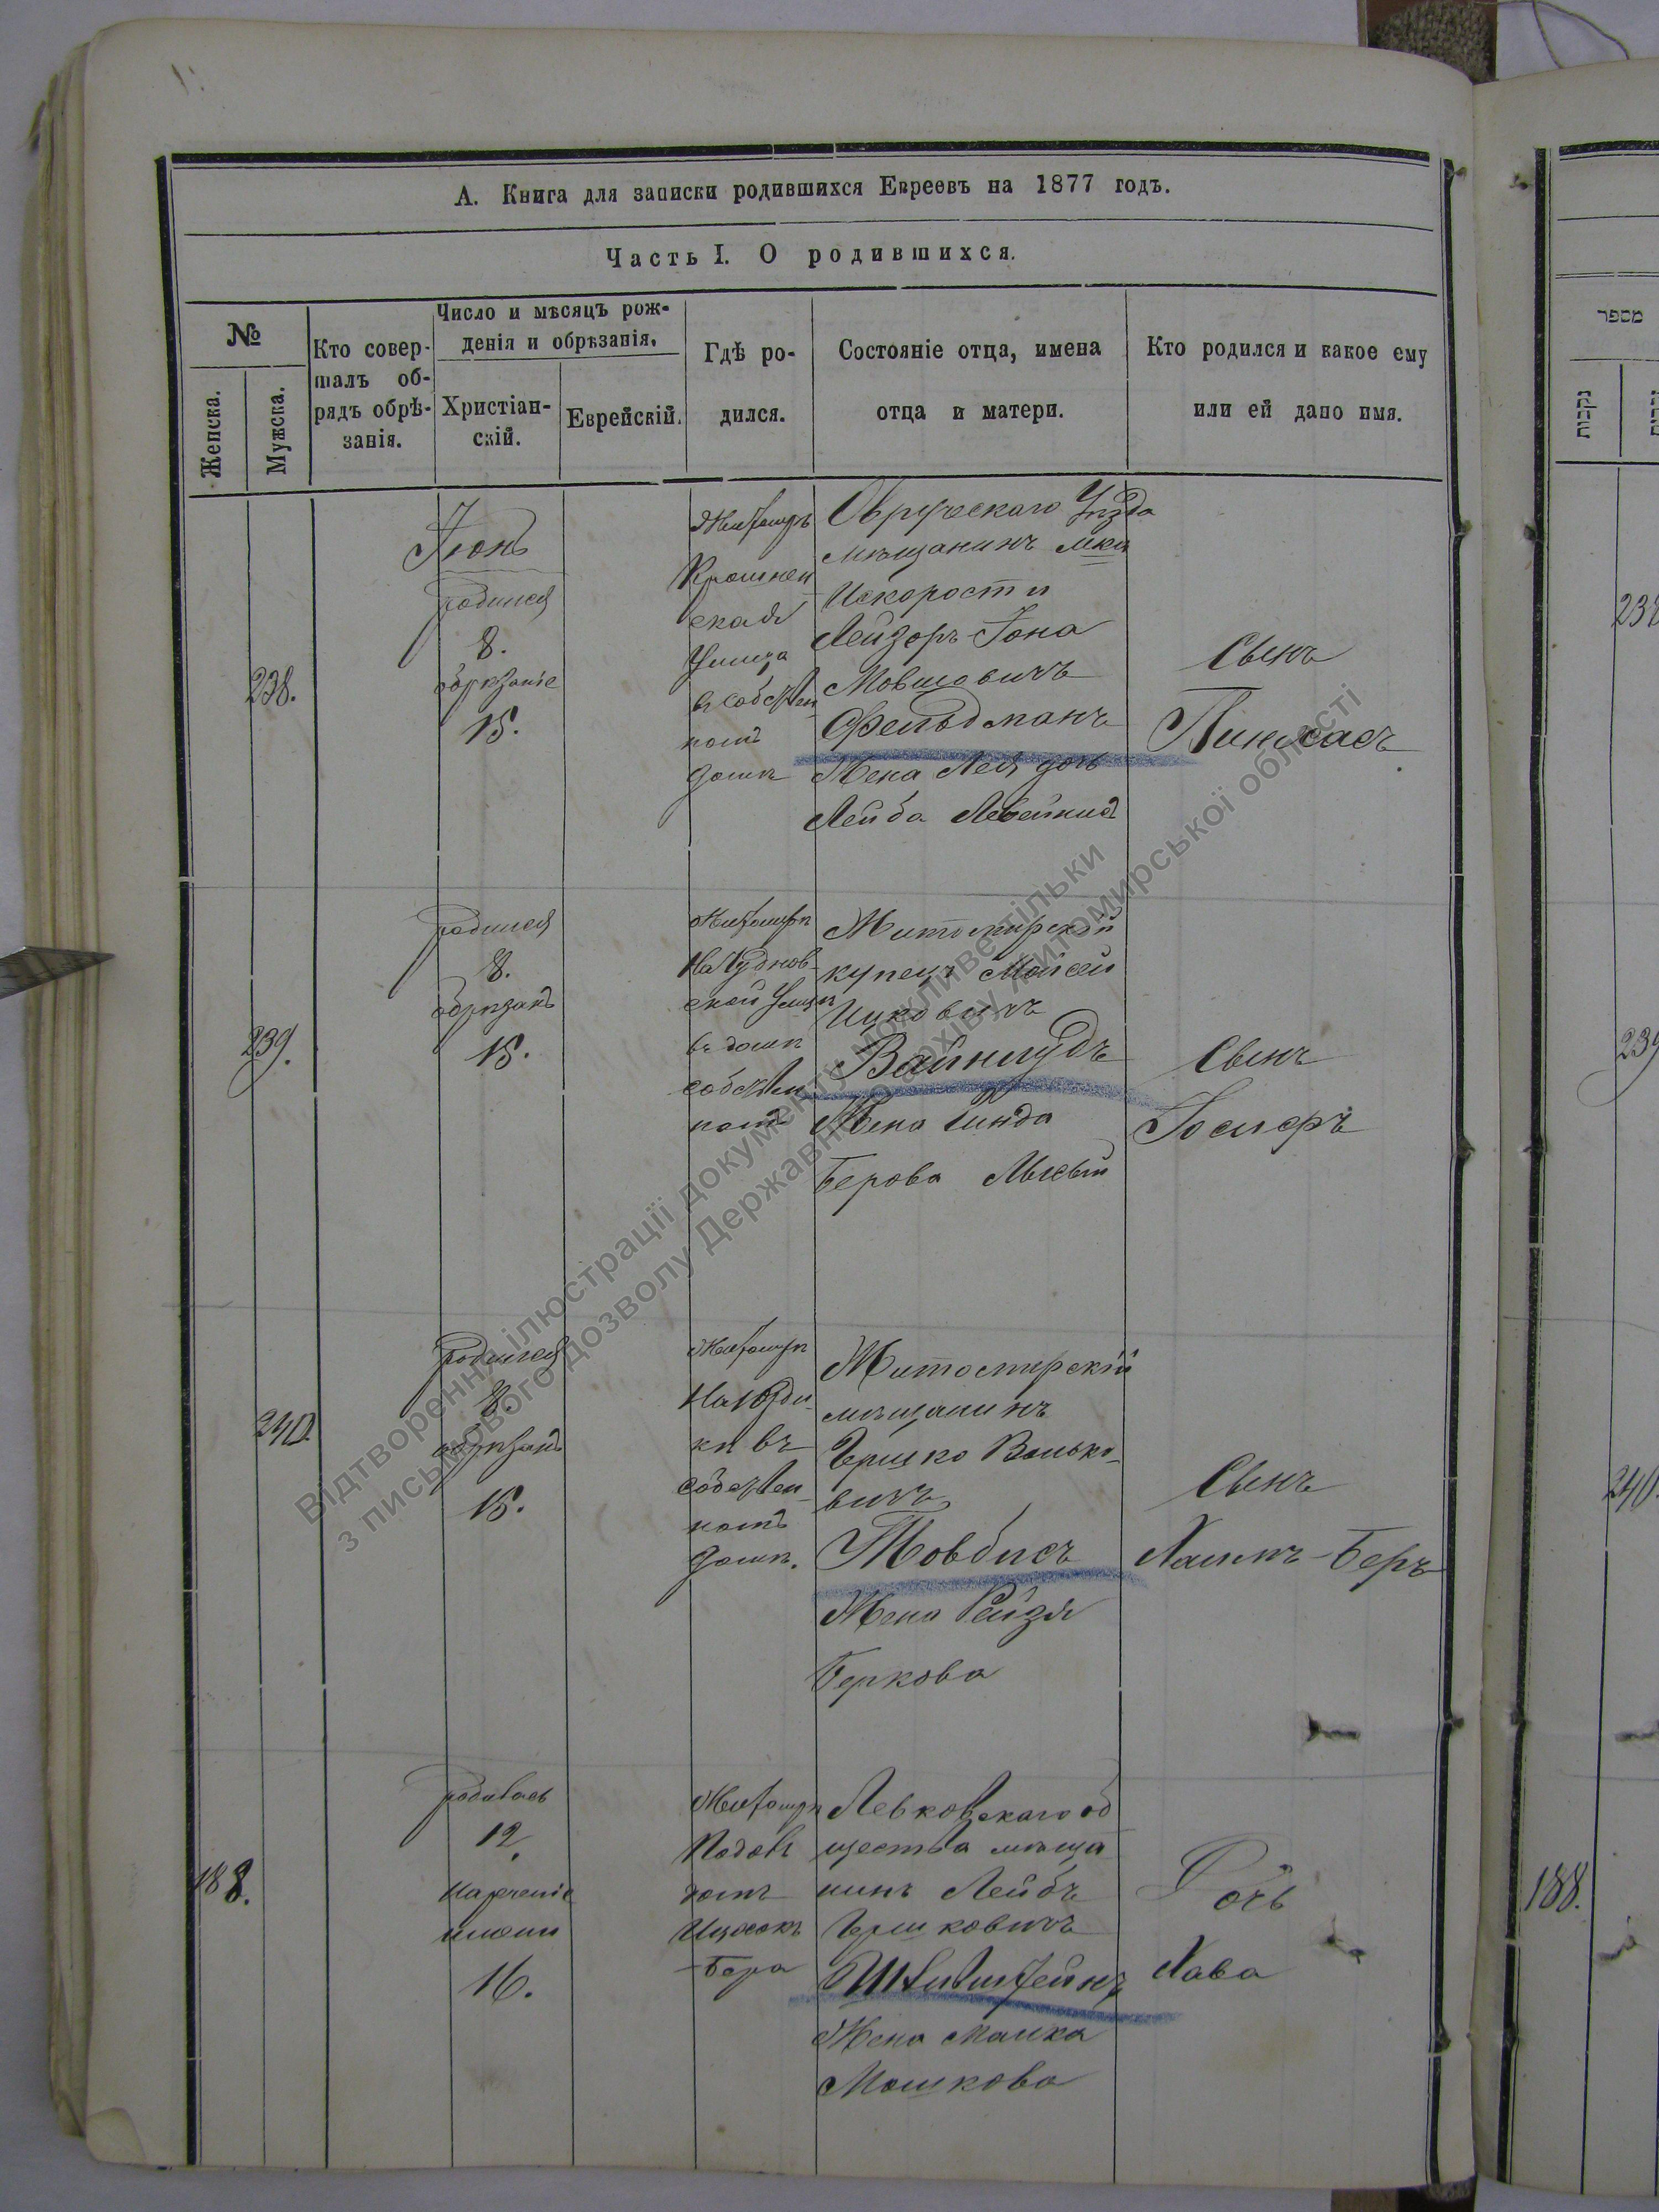 А. Книга для записки родившихся Евреевъ на 1877 годъ.
Часть I. О родившихся.
№
Женска.
Мужска.
Кто совер-
шалъ об-
рядъ обрѣ-
занія.
Число и мѣсяцъ рож-
денія и обрѣзанія.
Христіан-
скій.
Еврейскій.
Гдѣ ро-
дился.
Состояніе отца, имена
отца и матери.
Кто родился и какое ему
или ей дано имя.
238.
Іюнь
родился
8.
обрѣзаніе
15.
Житомиръ
Крошнен
ская
Улица
въ собствен
номъ
домѣ
Овручскаго Уѣзда
мѣщанинъ мка
Искорости
Лейзоръ-Іона
Мовшовичъ
Фельдманъ
Жена Лея дочь
Лейба
Сынъ
Пинхасъ
239.
родился
8.
обрѣзанъ
15.
Житомиръ
На Чуднов-
ской Улицѣ
въ домѣ
собствен
номъ
Житомирскій
купецъ Мойсей
Ицковичъ
Вайншудъ
Жена Гинда
Берова
Сынъ
Іосифъ
240.
родился
8.
обрѣзанъ
15.
Житомирѣ
На
въ
собствен-
номъ
домѣ.
Житомирскій
мѣщанинъ
Гершко Волько-
вичъ
Товбисъ
Жена Рейзя
Беркова
Сынъ
Хаимъ-Беръ
188.
родилась
12.
нареченіе
имени
16.
Житомиръ
домъ
Бера
Левковскаго об
щества мѣща
нинъ Лейбъ
Гершковичъ
Жена Малка
Мошкова
Дочь
Хава
מספר
נקבות
238
239
240.
188.
Відтворення ілюстрації документу можливе тільки
з письмового дозволу Державного архіву Житомирської області